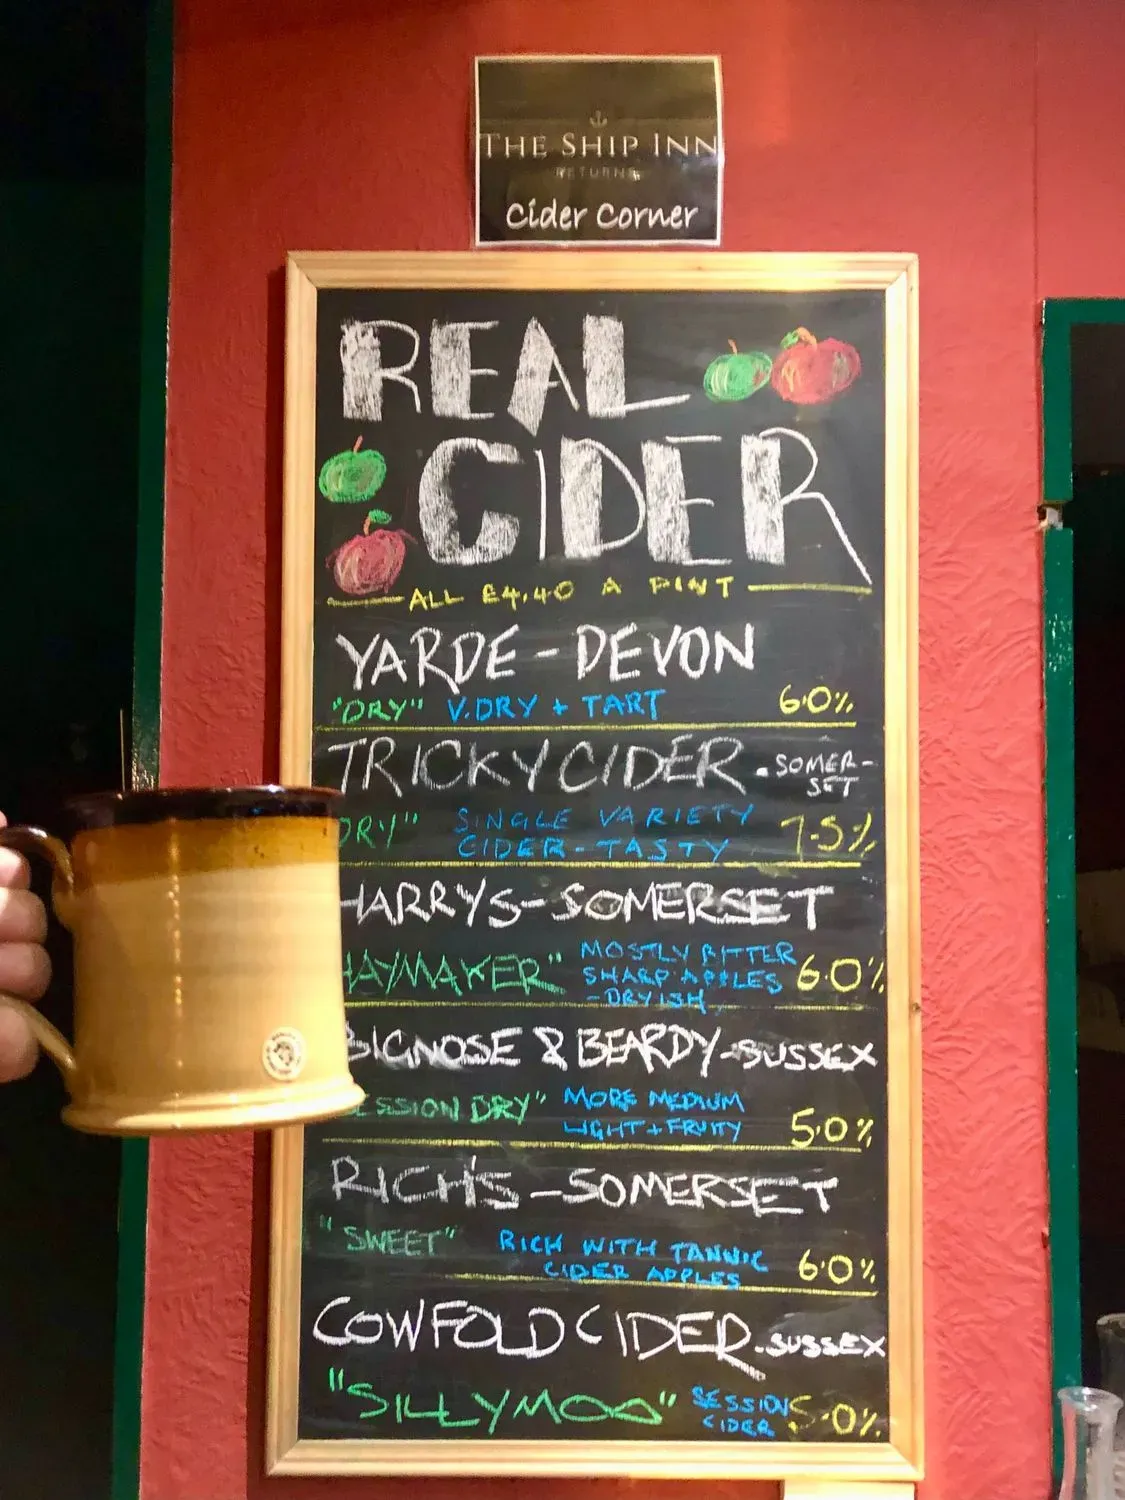 THE SHIP INN
RETURNS
Cider Corner
REAL
CIDER
ALL £4.40 A PINT
YARDE - DEVON
"DRY" V.DRY + TART 6.0%
TRICKY CIDER. SOMER-
SET
DRY" SINGLE VARIETY 7.5%
CIDER - TASTY
HARRYS - SOMERSET
HAYMAKER" MOSTLY BITTER
SHARP APPLES 6.0%
- DRYISH
BIGNOSE & BEARDY - SUSSEX
SESSION DRY" MORE MEDIUM
LIGHT + FRUITY 5.0%
RICH'S - SOMERSET
"SWEET" RICH WITH TANNIC
CIDER APPLES 6.0%
COWFOLD CIDER. SUSSEX
"SILLYMOO" SESSION 5.0%
CIDER